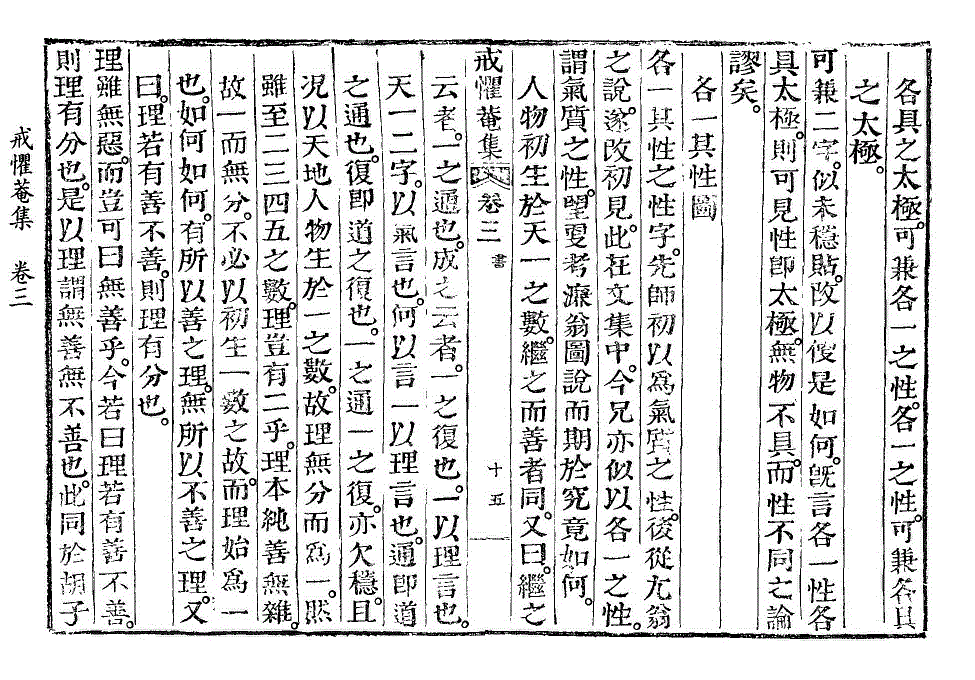 各具之太極。可兼各一之性。各一之性。可兼各具
之太極。
可兼二字。似未穩貼。改以便是如何。旣言各一性各
具太極。則可見性卽太極。無物不具。而性不同之論
謬矣。
各一其性圖
各一其性之性字。先師初以爲氣質之性。後從尤翁
之說。遂改初見。此在文集中。今兄亦似以各一之性。
謂氣質之性。望更考濂翁圖說而期於究竟如何。
人物初生於天一之數。繼之而善者同。又曰。繼之
戒懼菴集 卷三 書 十五
云者。一之通也。成之云者。一之復也。一以理言也。
天一二字。以氣言也。何以言一以理言也。通卽道
之通也。復卽道之復也。一之通一之復。亦欠穩。且
况以天地人物生於一之數。故理無分而爲一。然
雖至二三四五之數。理豈有二乎。理本純善無雜。
故一而無分。不必以初生一數之故。而理始爲一
也。如何如何。有所以善之理。無所以不善之理。又
曰。理若有善不善。則理有分也。
理雖無惡。而豈可曰無善乎。今若曰理若有善不善。
則理有分也。是以理謂無善無不善也。此同於胡子
戒懼菴集 卷三